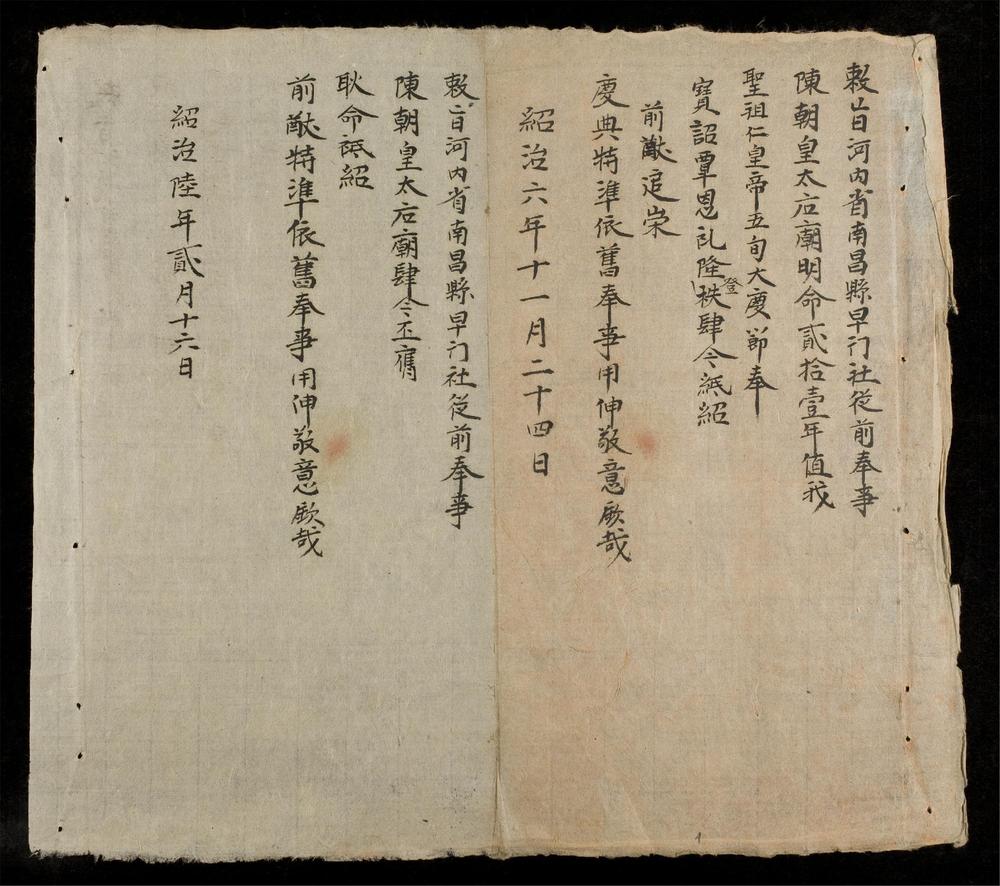 敕旨河内省南昌縣早门社從前奉事
陳朝皇太后廟明命貳拾壹年值我
聖祖仁皇帝五旬大慶節奉
寶詔覃恩礼隆登秩肆今祗紹
前猷追崇
慶典特準依舊奉事用伸敬意厥哉
紹治六年十一月二十四日
敕旨河内省南昌縣早门社從前奉事
陳朝皇太后廟肆今丕膺
耿命祗紹
前猷特準依舊奉事用伸敬意厥哉
紹治陸年貳月十六日